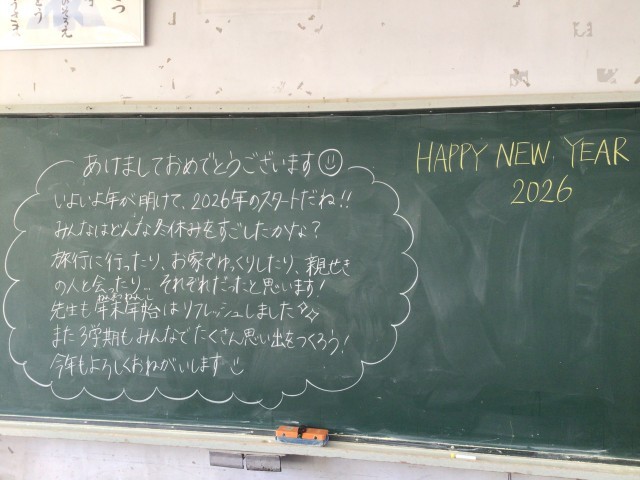 あけましておめでとうございます
いよいよ年が明けて、2026年のスタートだね!!
みんなはどんな冬休みをすごしたかな？
旅行に行ったり、お家でゆっくりしたり、親せき
の人と会ったり… それぞれだったと思います!
先生も年末年始はリフレッシュしました
また3学期もみんなでたくさん思い出をつくろう!
今年もよろしくおねがいします
HAPPY NEW YEAR
2026